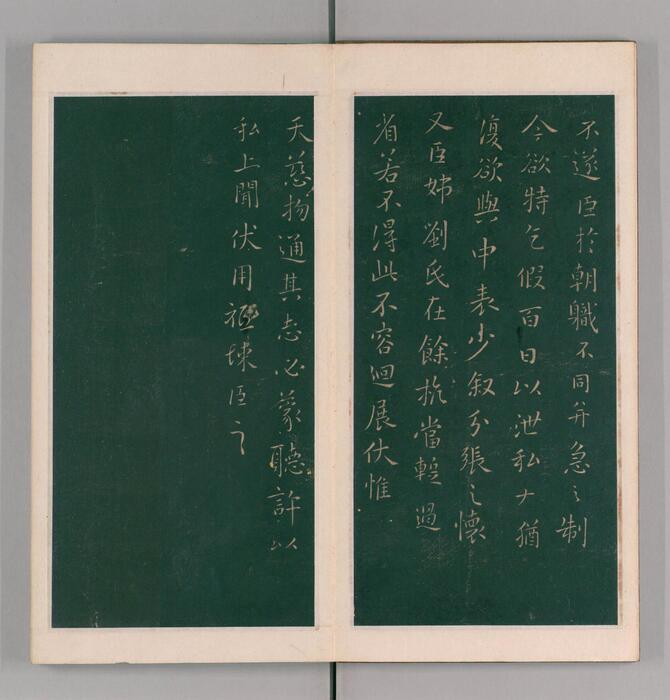 不遂臣於朝職不同并急之制
今欲特乞假百日以泄私猶
復欲與中表少叙分張之懷
又臣姉劉氏在餘杭當蹔過
省若不得此不容迴展伏惟
天慈物通其志必蒙聽許以
私上聞伏用祗悚臣之